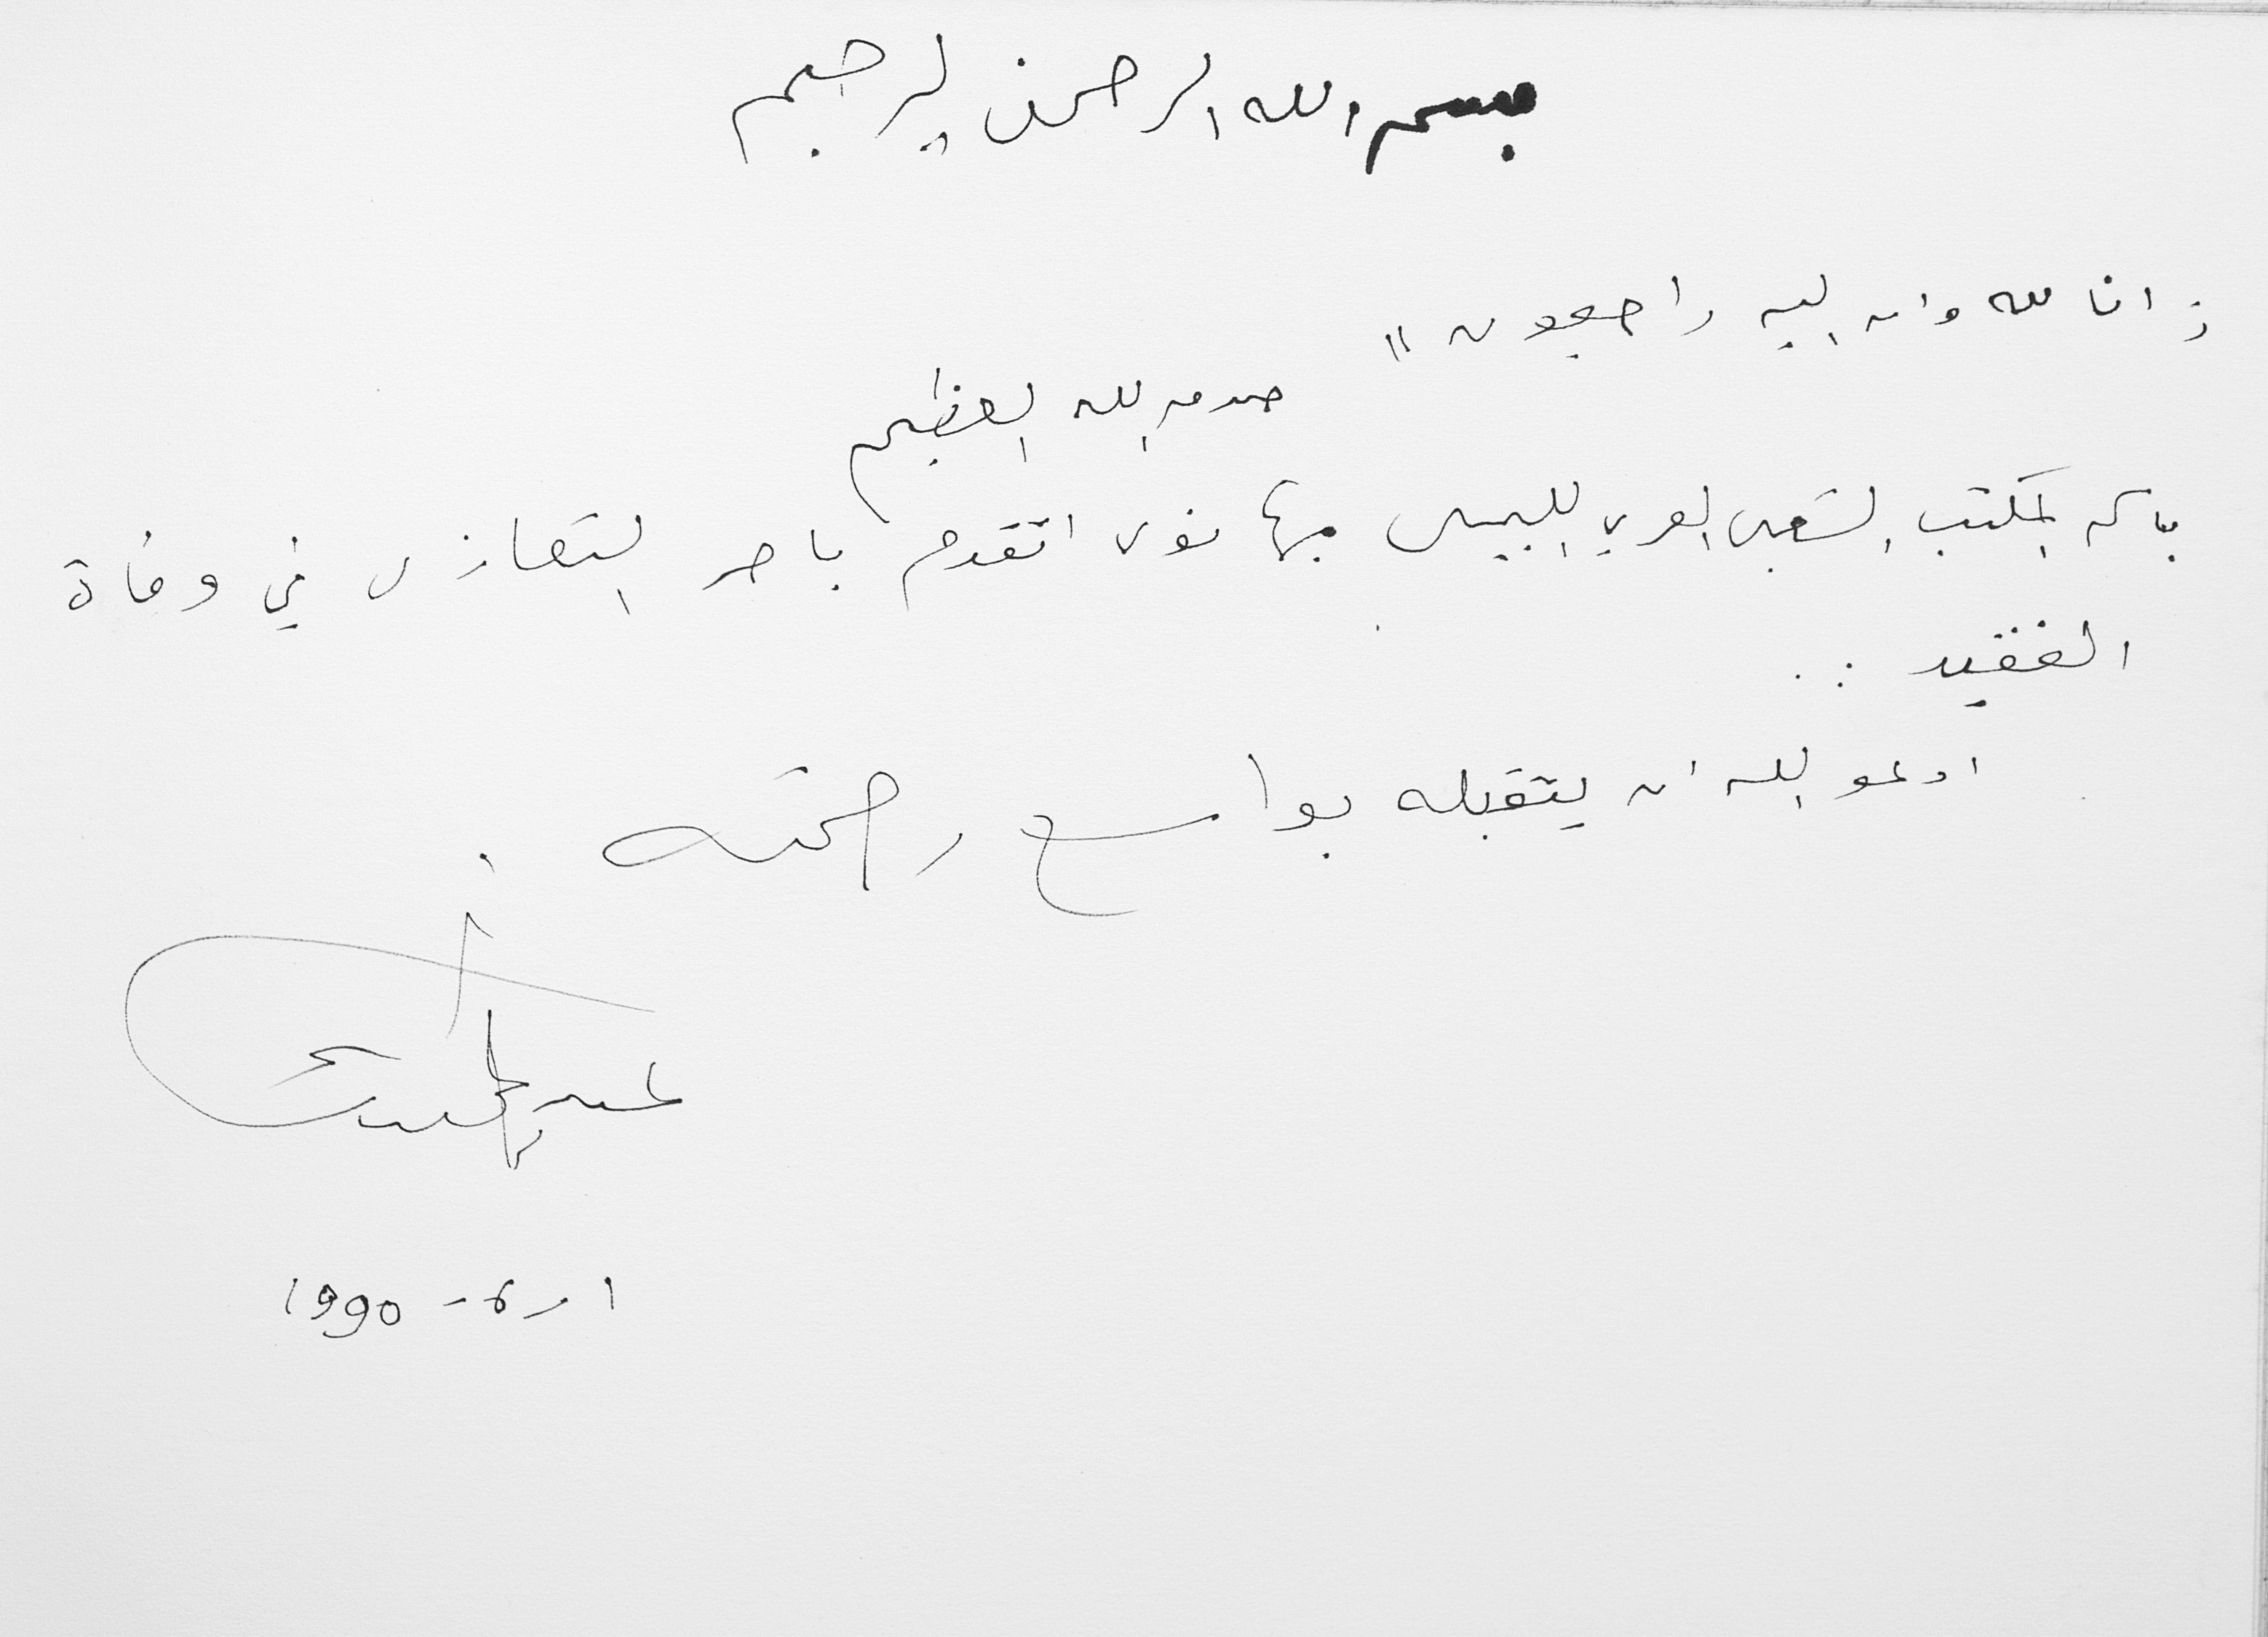 بسم الله الرحمن الرحيم
انا لله وان اليه راجعون "
صدق الله العظيم
باسم المكتب الشعبي العربي الليبي بهانوي اتقدم باحر التعازي في وفاة
الفقيد ..
ادعو الله ان يتقبله بواسع رحمته .
1990 - 6 - 1